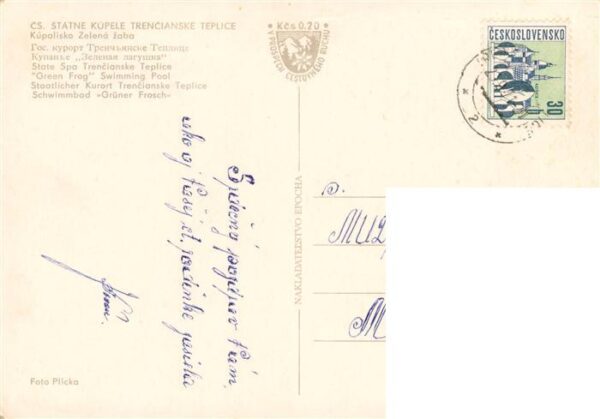 ČS. ŠTÁTNE KÚPELE TRENČIANSKE TEPLICE
Kúpalisko Zelená žaba
Гос. курорт Тренчьянске Теплице
Купанье „Зеленая лягушка"
State Spa Trenčianske Teplice
"Green Frog" Swimming Pool
Staatlicher Kurort Trenčianske Teplice
Schwimmbad «Grüner Frosch»
Kčs 0.70
V PROSPECH CESTOVNÉHO RUCHU
ČESKOSLOVENSKO
30
h
2
Srdečný pozdrav Vám
ako aj Vašej
NAKLADATEĽSTVO EPOCHA
p.
Foto Plicka